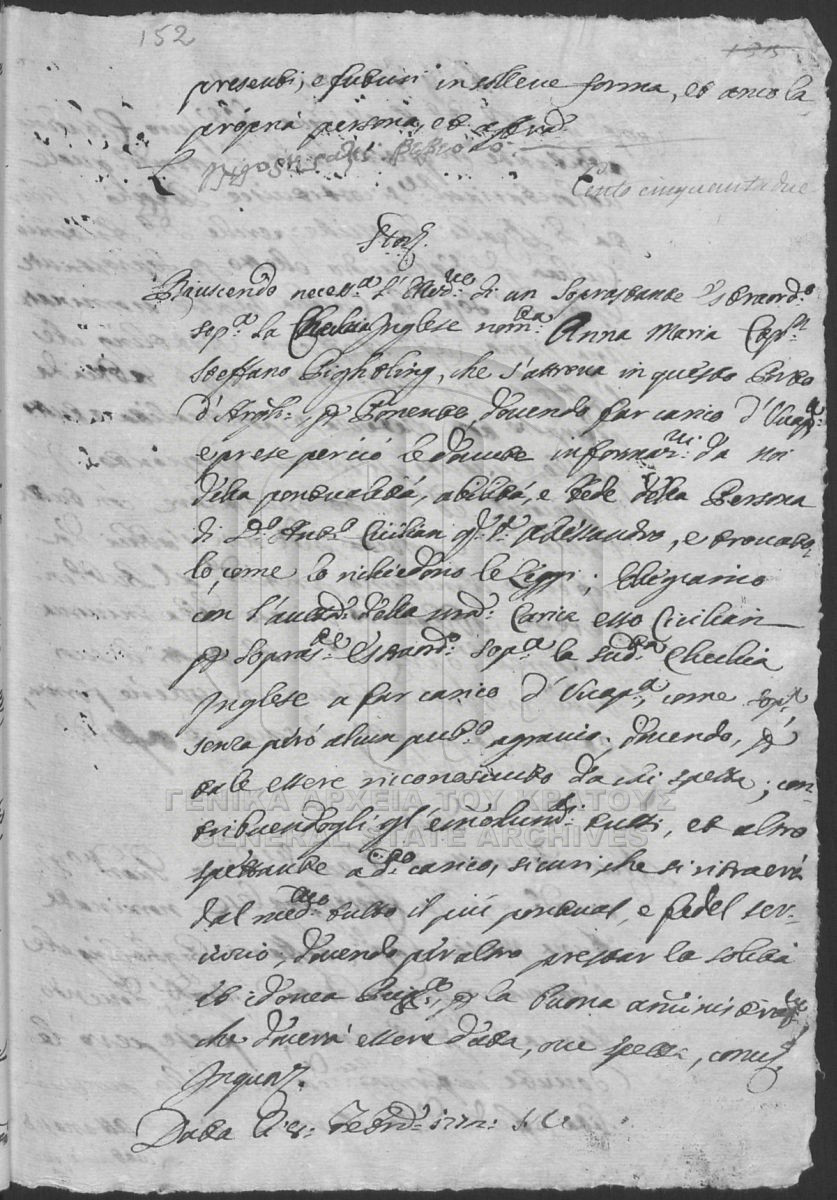 152
135
presenti, e futuri in solleue forma, et anco la
propria persona, et
Cento cinquanta due
Riuscendo necess.a l' di un soprastante Estraord.o
sop.a la Chechia Inglese nom.ta Anna Maria Cap.n
Steffano Pightling, che s'attroua in questo Porto
d'Arg.li p Ponente, douendo far carico d'Vuap.a
e prese perciò le douute informaz.ni da noi
della pontualità, abilità, e fede della Persona
di D.o Ant.o Cicilian q.m S.r Alessandro, e trouato-
lo, come lo richiedono le Leggi; Eleggiamo
con l'autt.à della nrã Carica esso Cicilian
p Sopras.te Estraord.o sop.a la sud.ta Chechia
Inglese a far carico d'Vuap.a, come sop.a
senza però alcun pub.o agrauio; douendo, p
tale essere riconosciuto da chi spetta; con-
tribuendogli gl'emolum.ti tutti, et altro
spettante a d.o carico, sicuri, che si ritraerà
dal med.mo tutto il più pontual, e fedel ser-
uicio, douendo per altro prestar la solita
et idonea Pieg.a, p la buona aministraz.e
che douerà essere data, oue spetta,
In quor.
Data li 8: Febr.o
ΓΕΝΙΚΑ ΑΡΧΕΙΑ ΤΟΥ ΚΡΑΤΟΥΣ
GENERAL STATE ARCHIVES